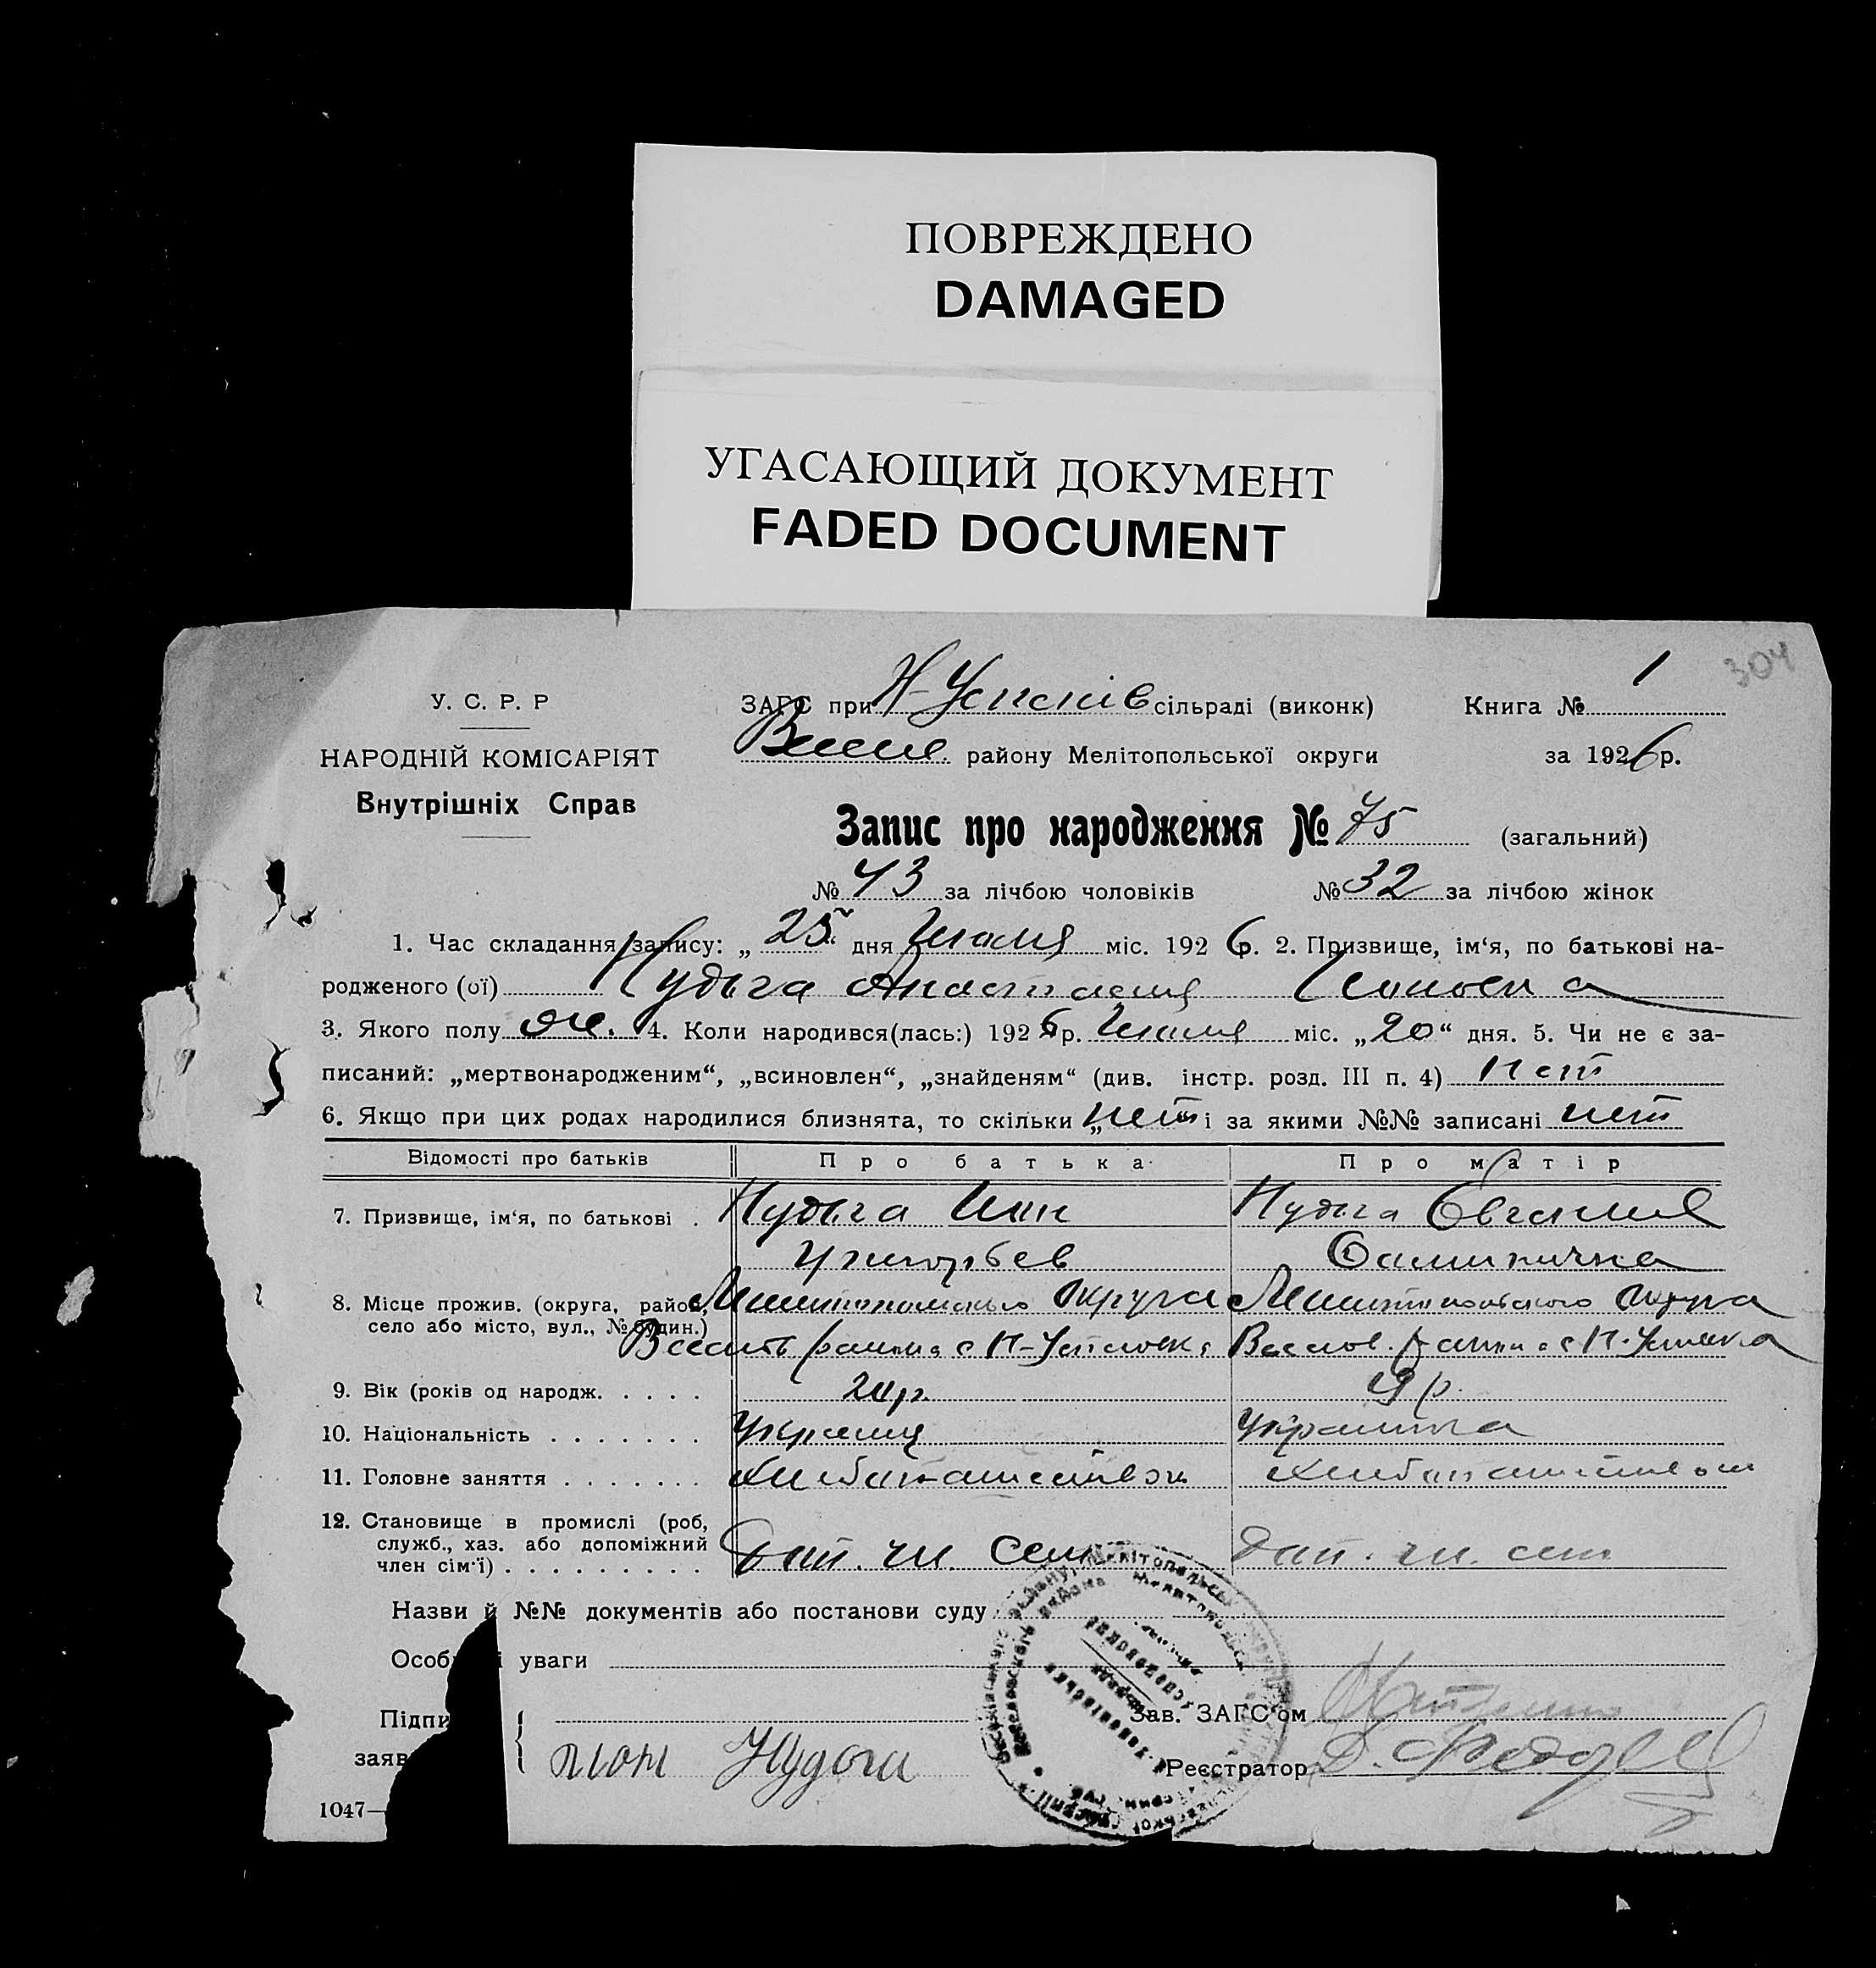 ПОВРЕЖДЕНО
DAMAGED
УГАСАЮЩИЙ ДОКУМЕНТ
FADED DOCUMENT
304
У. С. Р. Р
НАРОДНІЙ КОМІСАРІЯТ
Внутрішніх Справ
ЗАГС при Н-Успенів сільраді (виконк) Книга № 1
району Мелітопольської округи за 1926 р.
Запис про народження № 75 (загальний)
№ 43 за лічбою чоловіків № 32 за лічбою жінок
1. Час складання запису: „25“ дня міс. 1926 р. 2. Призвище, ім‘я, по батькові на-
родженого (ої) Нудьга Анастасия
3. Якого полу же. 4. Коли народився(лась:) 1926 р. міс. „20“ дня. 5. Чи не є за-
писаний: „мертвонародженим“, „всиновлен“, „знайденям“ (див. інстр. розд. III п. 4) нет
6. Якщо при цих родах народилися близнята, то скільки „нет“ і за якими №№ записані нет
Відомості про батьків Про батька Про матір
7. Призвище, ім‘я, по батькові . Нудьга Нудьга
Григорьев
8. Місце прожив. (округа, район, Мелитопольского округа Мелитопольского округа
село або місто, вул., № будин.) района с Н-Успеновка
9. Вік (років од народж. . . . . 20 р. 19 р.
10. Національність . . . . . . . Украинец Украинка
11. Головне заняття . . . . . . . Хлибопашеством Хлибопашеством
12. Становище в промислі (роб,
служб., хаз. або допоміжний
член сім‘ї) . . . . . . . . . чл. сем чл. сем
Назви й №№ документів або постанови суду
Особ і уваги
Підпи Зав. ЗАГС‘ом
заяв Нудьга Реєстратор
1047—